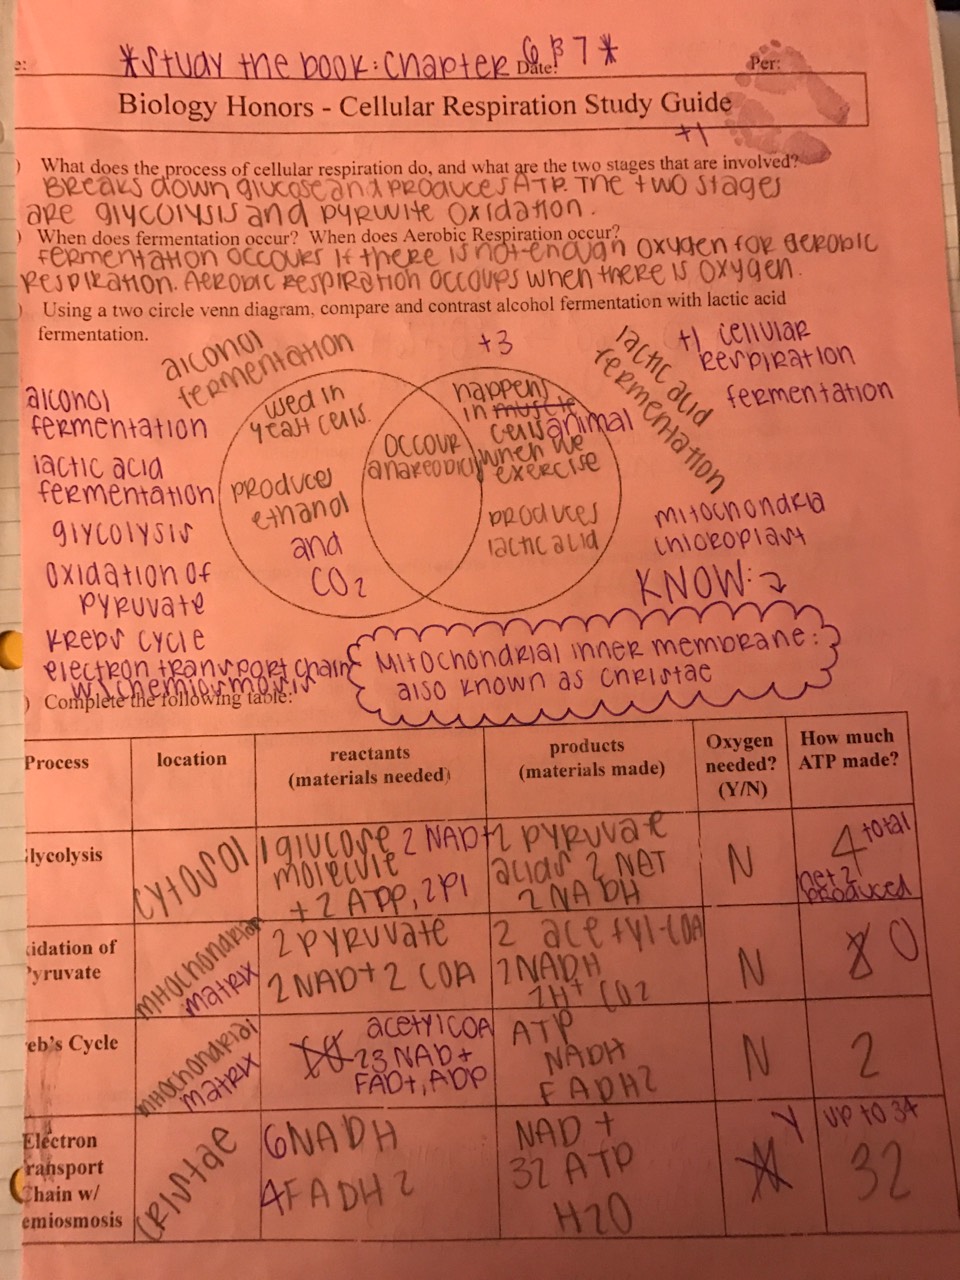 *study the book: chapter 6 & 7 *
e:
Date:
Per:
Biology Honors - Cellular Respiration Study Guide
+1
) What does the process of cellular respiration do, and what are the two stages that are involved?
Breaks down glucose and produces ATP. The two stages
are glycolysis and pyruvite oxidation.
) When does fermentation occur? When does Aerobic Respiration occur?
Fermentation occours if there is not enough oxygen for aerobic
respiration. Aerobic respiration occours when there is oxygen.
) Using a two circle venn diagram, compare and contrast alcohol fermentation with lactic acid
fermentation.
alcohol
fermentation
+3
lactic acid
fermentation
+1 cellular
respiration
fermentation
alcohol
fermentation
lactic acid
fermentation
glycolysis
oxidation of
pyruvate
krebs cycle
electron transport chain
w/chemiosmosis
used in
yeast cells.
produces
ethanol
and
CO2
occour
anareobicly
happens
in muscle
cells animal
when we
exercise
produces
lactic acid
mitochondria
chloroplast
KNOW:
Mitochondrial inner membrane:
also known as christae
) Complete the following table:
Process
location
reactants
(materials needed)
products
(materials made)
Oxygen
needed?
(Y/N)
How much
ATP made?
lycolysis
cytosol
1 glucose 2 NAD+
molecule
+ 2 ATP, 2Pi
2 pyruvate
acids 2 NET
2 NADH
N
4 total
net 2
produced
idation of
Pyruvate
mitochondrian
matrix
2 pyruvate
2 NAD+ 2 COA
2 acetyl-COA
2NADH
2H+ CO2
N
0
eb's Cycle
mitochondrial
matrix
acetylCOA
23 NAD+
FAD+, ADP
ATP
NADH
FADH2
N
2
Electron
ransport
Chain w/
emiosmosis
cristae
6NADH
4FADH2
NAD+
32 ATP
H2O
Y
up to 34
32